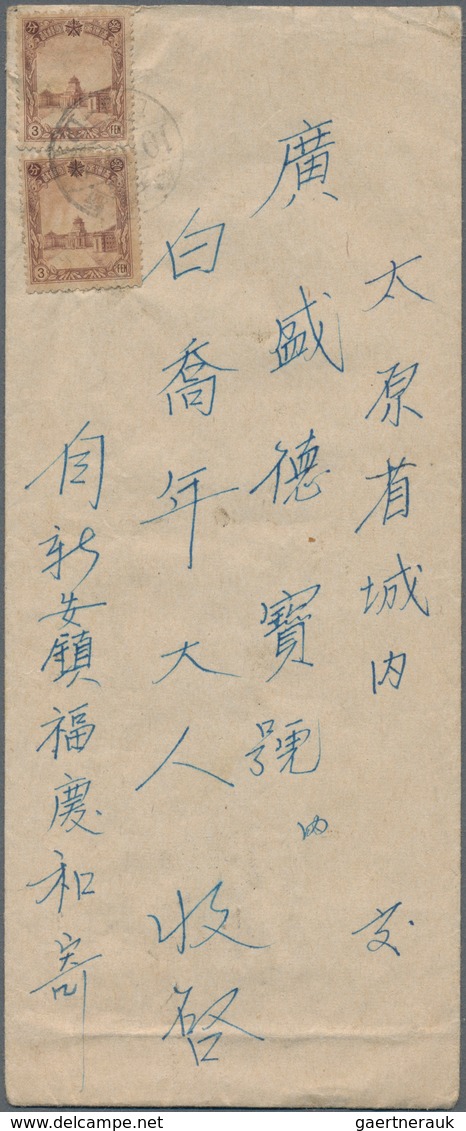 太原省城内 交
廣盛德寶號内
白喬年大人 收啓
自新安鎮福慶和寄
3 FEN
3 FEN
www.delcampe.net
gaertnerauk